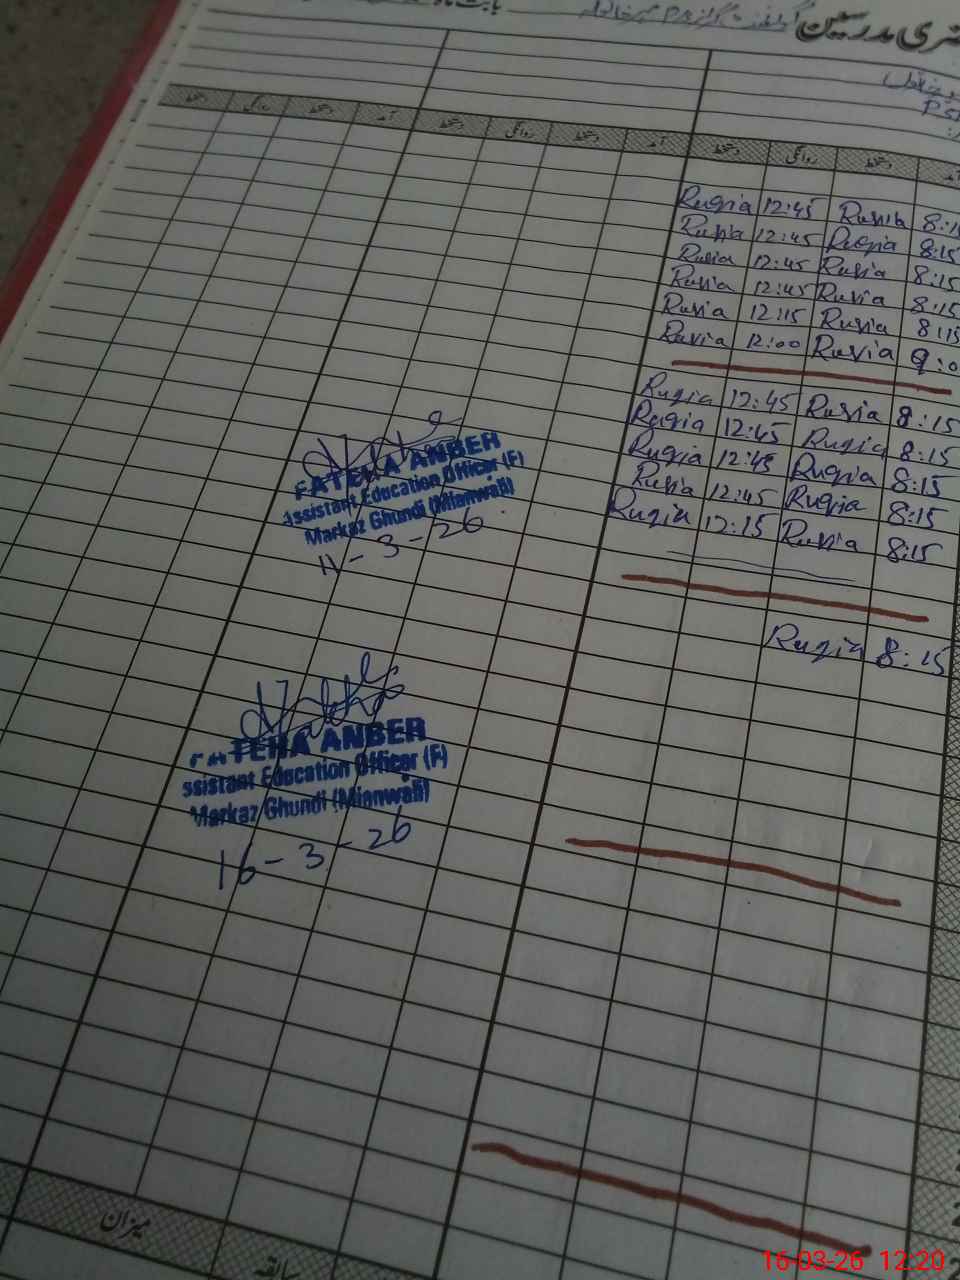 مدرسین
بابت ماہ
آمد دستخط روانگی دستخط آمد دستخط روانگی دستخط آمد دستخط روانگی دستخط
Ruqia 12:45 Ruqia 8:15
Ruqia 12:45 Ruqia 8:15
Ruqia 12:45 Ruqia 8:15
Ruqia 12:45 Ruqia 8:15
Ruqia 12:15 Ruqia 8:15
Ruqia 12:00 Ruqia 9:0
Ruqia 12:45 Ruqia 8:15
Ruqia 12:45 Ruqia 8:15
Ruqia 12:45 Ruqia 8:15
Ruqia 12:45 Ruqia 8:15
Ruqia 12:15 Ruqia 8:15
FATEHA ANBER
Assistant Education Officer (F)
Markaz Ghundi (Mianwali)
11-3-26
Ruqia 8:15
TEHA ANBER
ssistant Education Officer (F)
Markaz Ghundi (Mianwali)
16-3-26
میزان
سابقہ
16-03-26 12:20